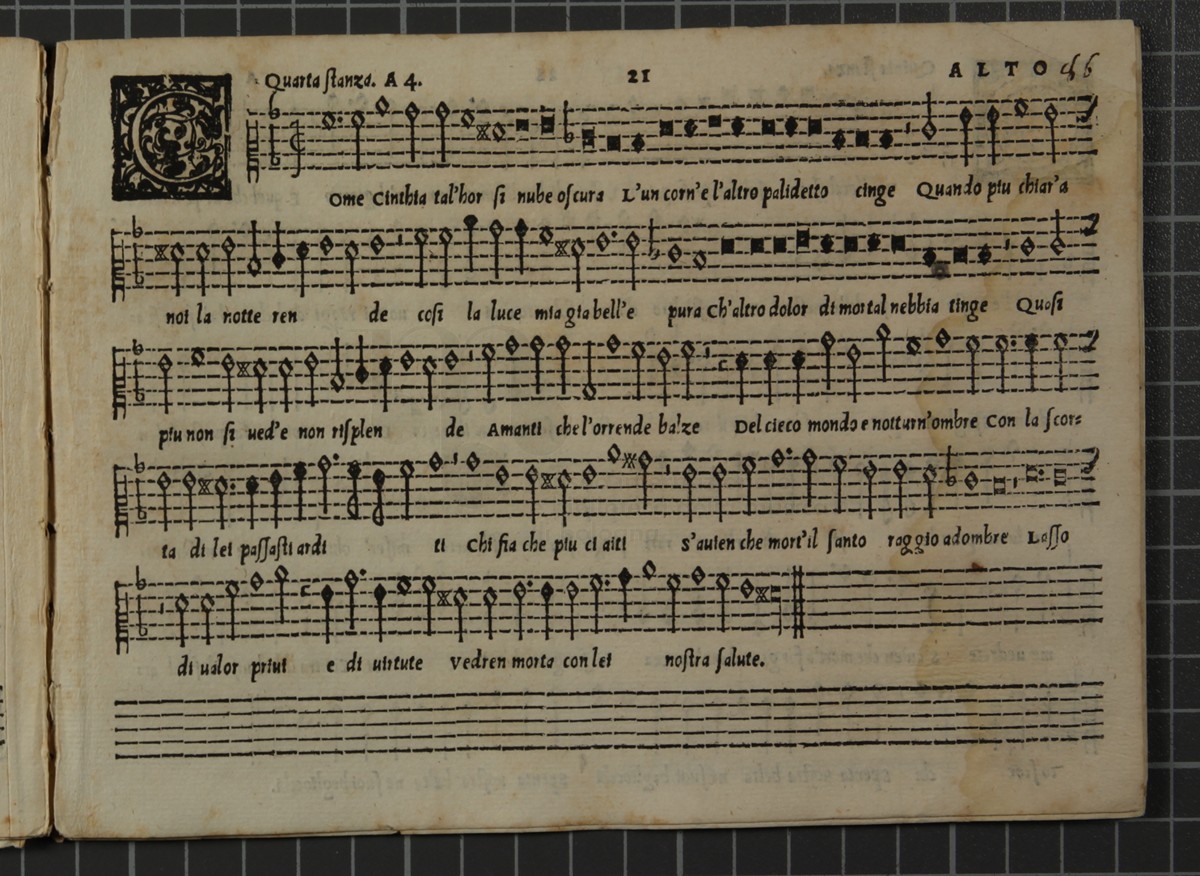 Quarta ſtanza. A 4. 21 ALTO 56
COme Cinthia tal'hor ſi nube oſcura L'un corn'e l'altro palidetto cinge Quando piu chiar'a
noi la notte ren de coſi la luce mia gia bell'e pura Ch'altro dolor di mortal nebbia tinge Quaſi
piu non ſi ued'e non riſplen de Amanti che l'orrende balze Del cieco mondo e notturn'ombre Con la ſcor=
ta di lei paſſaſti ardi ti Chi fia che piu ci aiti S'auien che mort'il ſanto raggio adombre Laſſo
di ualor priui e di uirtute Vedren morta con lei noſtra ſalute.